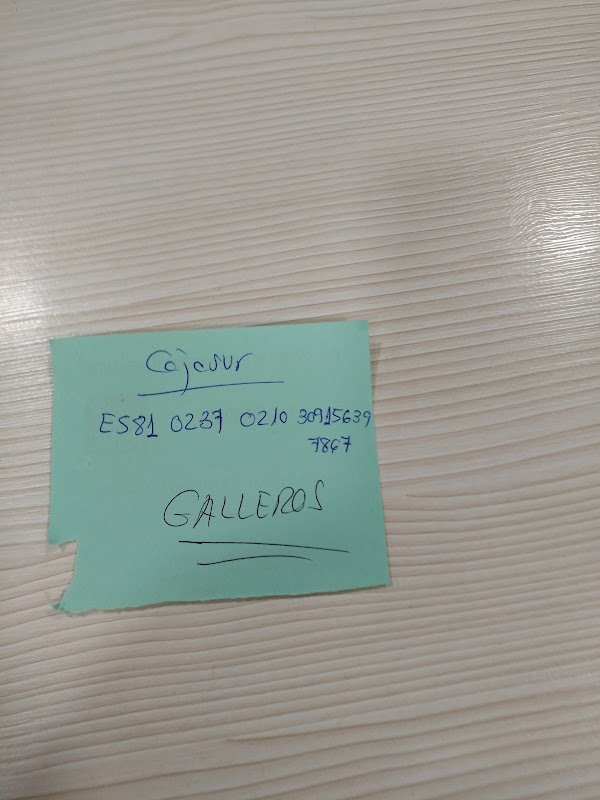 Cajasur
ES81 0237 0210 30915639
7867
GALLEROS